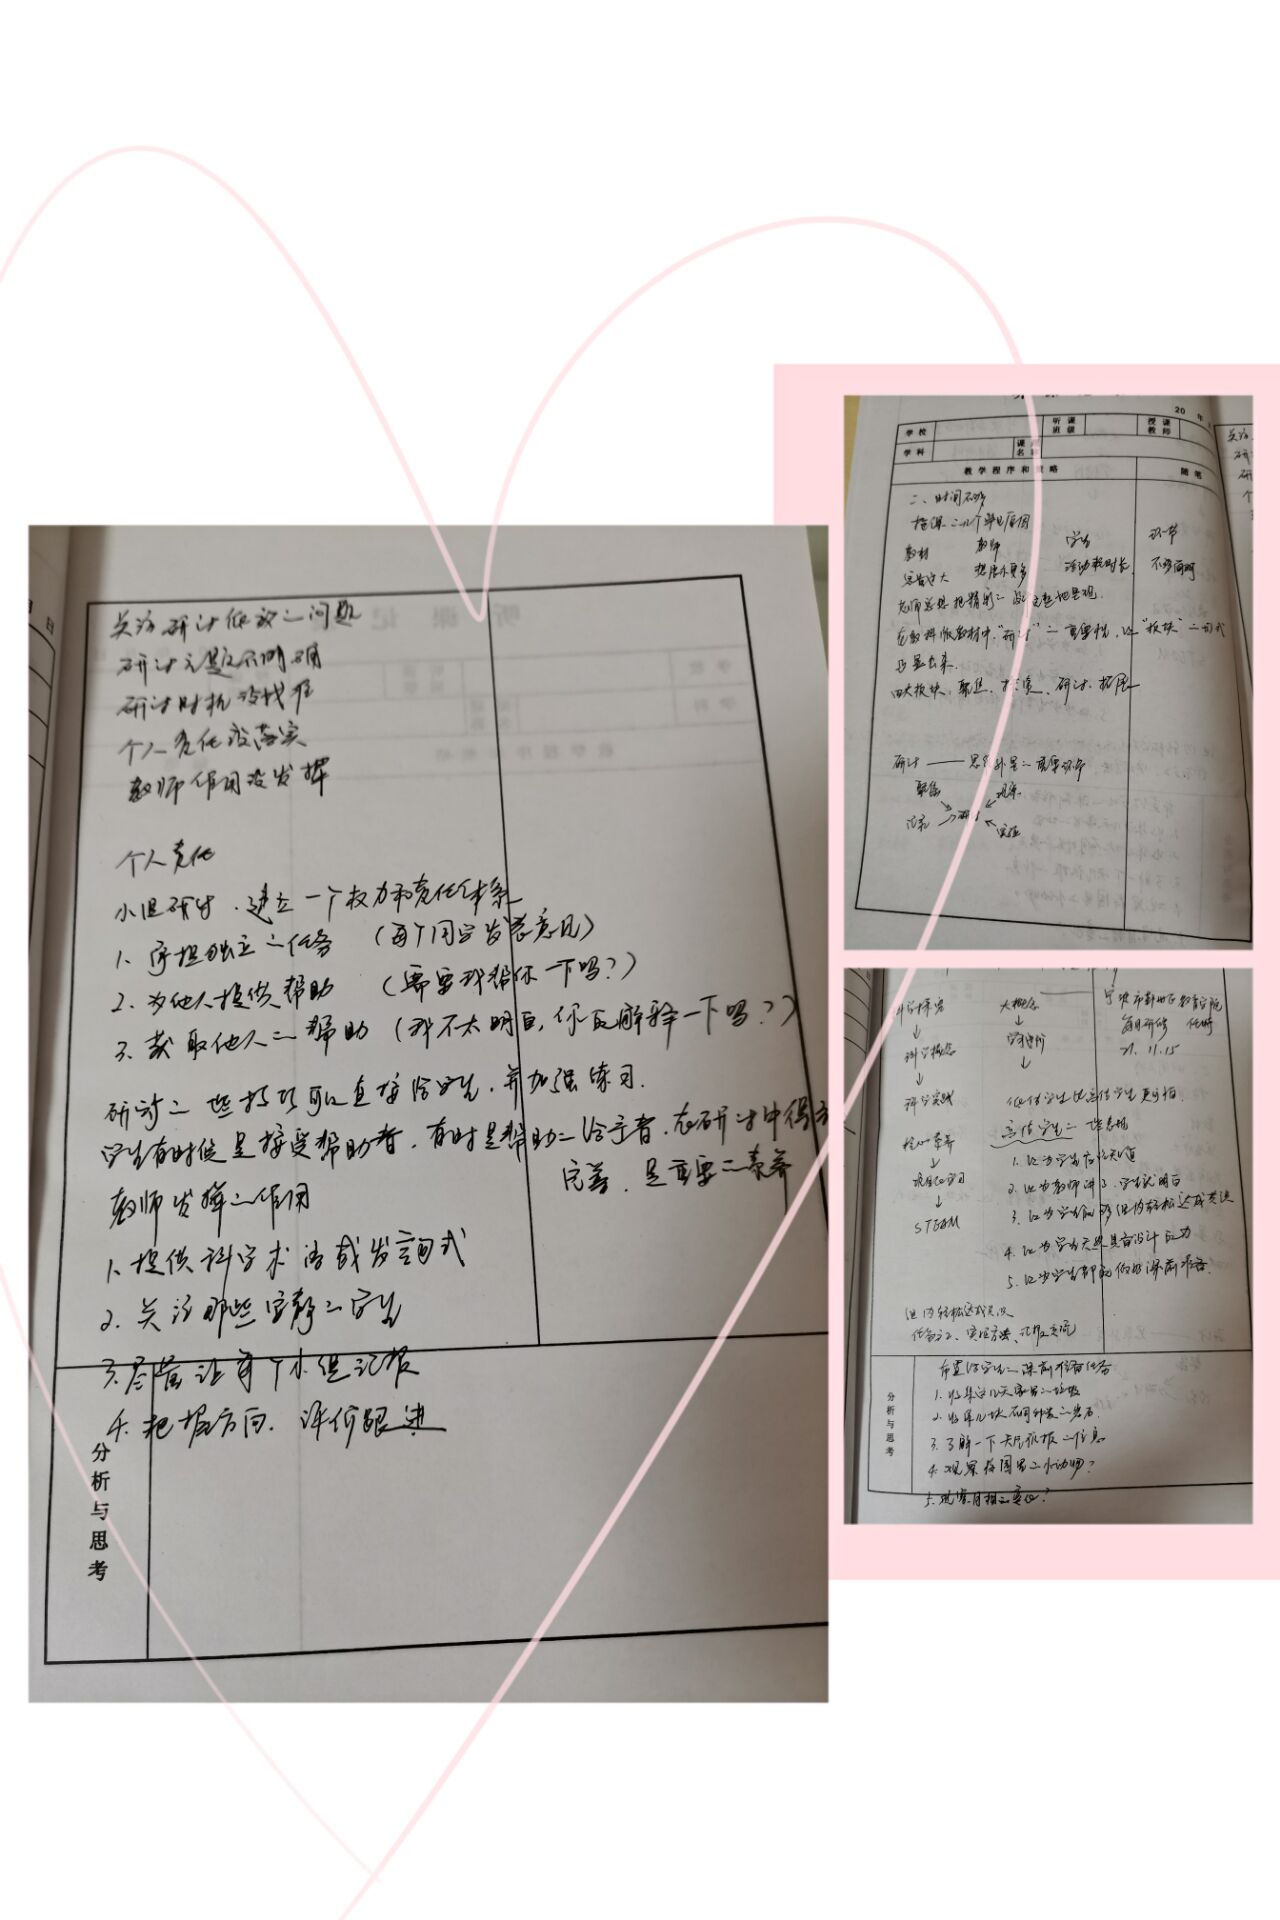 关于研讨低效的问题
研讨主题不明确
研讨时机没找准
个人责任没落实
教师作用没发挥
个人责任
小组研讨，建立一个权力和责任体系
1、承担独立的任务（每个同学发表意见）
2、为他人提供帮助（需要我帮你一下吗？）
3、获取他人的帮助（我不太明白，你能解释一下吗？）
研讨的一些技巧可以直接给学生，并加强练习.
学生有时候是接受帮助者，有时是帮助的给予者，在研讨中得
完善，是重要的素养
教师发挥的作用
1、提供科学术语或发言句式
2、关注那些安静的学生
3、尽量让每个小组汇报
4、把握方向，评价跟进
分析与思考
20 年
学校 听课班级 授课教师
学科 课
教学程序和策略 随笔
二、时间不够
教材 教师 学生 环节
容量过大 想展示更多 活动耗时长 不够简明
老师总想把精彩的 完整地呈现.
在教科版教材中，“研讨”的重要性，以“板块”的形式
凸显出来.
四大板块：聚焦、探索、研讨、拓展
研讨——思维外显的重要环节
聚焦 观察
研讨
记录 实验
科学探究 大概念 宁波市鄞州区教育学院
↓ ↓ 每日研修
科学概念 学习进阶 21.11.15
↓ ↓
科学实践 低估学生比高估学生更可怕.
核心素养 高估学生的一些表现
↓ 1、认为学生应该知道
项目化学习 2、认为教师讲了，学生就明白
↓ 3、认为学生能够组内轻松达成共识
STEAM 4、认为学生天然具备设计能力
5、认为学生都能做好课前准备.
组内轻松达成共识
任务分工、实验方法、汇报交流
布置给学生的课前准备任务
1、收集这几天家里的垃圾
2、收集几块不同种类的岩石.
3、了解一下天气预报的信息
4、观察校园里的小动物？
5、观察月相的变化？
分析与思考